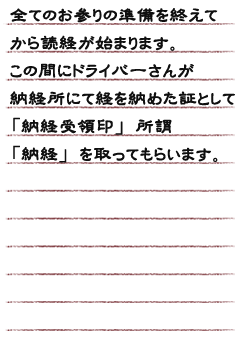 全てのお参りの準備を終えて
から読経が始まります。
この間にドライバーさんが
納経所にて経を納めた証として
「納経受領印」 所謂
「納経」 を取ってもらいます。